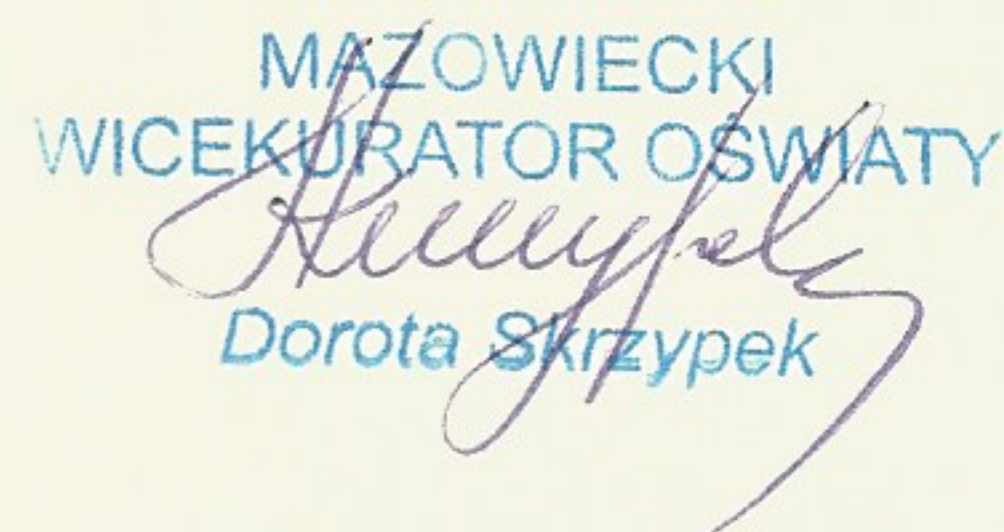 MAZOWIECKI
WICEKURATOR OŚWIATY
Skrzypek
Dorota Skrzypek